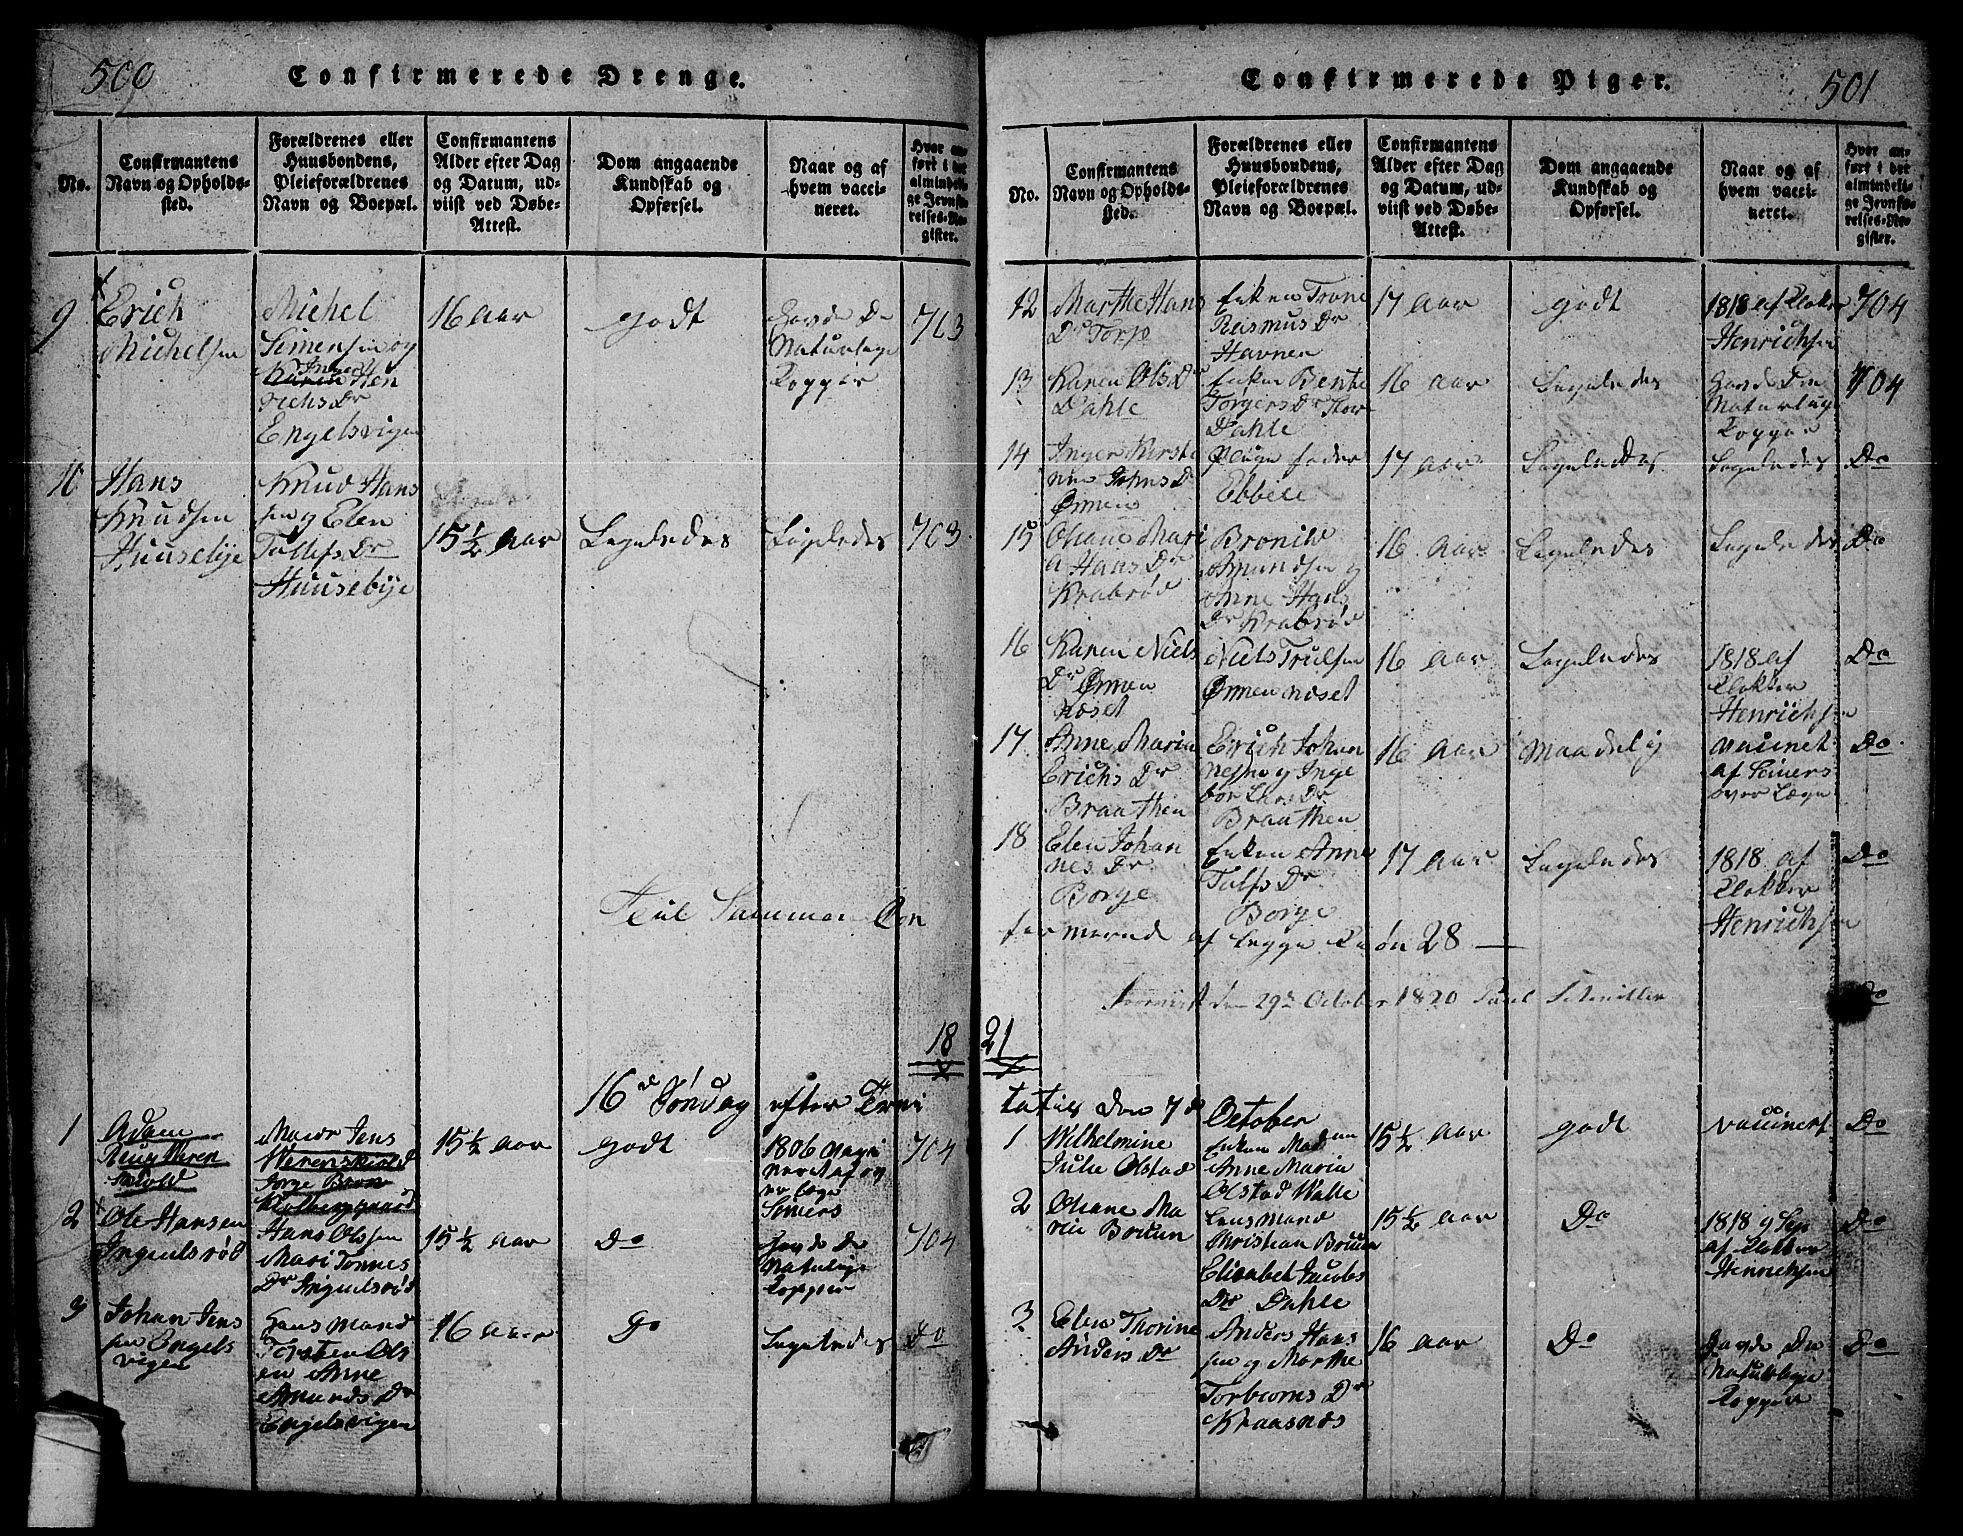 500
Confirmerede Drenge.
No.
Confirmantens
Navn og Opholds-
sted.
Forældrenes eller
Huusbondens,
Pleieforældrenes
Navn og Boepæl.
Confirmantens
Alder efter Dag
og Datum, ud-
viist ved Døbe-
Attest.
Dom angaaende
Kundskab og
Opførsel.
Naar og af
hvem vacci-
neret.
Hvor an-
ført i det
almindeli-
ge Jevnfø-
relses-Re-
gister.
9
Erich
Michelsen
Michel
Simensen og
Inger
Karen Hen
richs Dr
Engelsvigen
16 aar
godt
Havde De
Naturlige
Kopper
703
10
Hans
Knudsen
Huusebye
Knud Hans
sen og Elen
Tollefs Dr
Huusebye
15½ aar
Ligeledes
Ligeledes
703
18
16de Søndag efter Trini
1
Adam
Major Jens
Werenskiold
15½ aar
godt
1806
704
2
Ole Hansen
Ingeulsrød
Hans Olssen
Mari Tønnes
Dr Ingeulsrød
15½ aar
Do
Havde De
Naturlige
Kopper
704
3
Johan Jens
sen Engels
vigen
Torsten Ols
en Anne
Amunds Dr
Engelsvigen
16 aar
Do
Ligeledes
Do
501
Confirmerede Piger.
No.
Confirmantens
Navn og Opholds-
sted.
Forældrenes eller
Huusbondens,
Pleieforældrenes
Navn og Boepæl.
Confirmantens
Alder efter Dag
og Datum, ud-
viist ved Døbe-
Attest.
Dom angaaende
Kundskab og
Opførsel.
Naar og af
hvem vacci-
neret.
Hvor an-
ført i det
almindeli-
ge Jevnfø-
relses-Re-
gister.
12
Marthe Hans
Dr Torp
Enken Trone
Rasmus Dr
Havnen
17 aar
godt
1818 af Klokker
Henrichsen
704
13
Karen Ols Dr
Dahle
Enken Bente
Torgers Dr
Dahle
16 aar
Ligeledes
Havde Den
Naturlige
Kopper
704
14
Inger Kirsti
ne Johns Dr
Ørmen
Pleige fader
17 aar
Ligeledes
Ligeledes
Do
15
Oliane Mari
a Hans Dr
Krabrød
Amundsen og
Anne Hans
Dr Krabrød
16 aar
Ligeledes
Ligeledes
Do
16
Karen Niels
Dr Ørmen
næset
Niels Trulsen
Ørmen næset
16 aar
Ligeledes
1818 af
Klokker
Henrichsen
Do
17
Anne Maria
Erichs Dr
Braathen
Erich Johan
nesen og Inge
bor Lars Dr
Braathen
16 aar
maadelig
vacinet
af
over Læge
Do
18
Elen Johan
nes Dr
Borge
Enken Anne
Borge
17 aar
Ligeledes
1818 af
Klokker
Henrichsen
Do
28
den 29de October 1820
Do
21
tatis den 7de October
1
Wilhelmine
Julie Olstad
Enken Madam
Anne Maria
Olstad Walle
15½ aar
godt
vacineret
Do
2
Oliane Ma
ria Bruun
Lensmand
Christian Bruun
Elisabet Jacobs
Dr Dahle
15½ aar
Do
af Klokker
Henrichsen
Do
3
Elen Thorine
Anders Dr
Anders Hans
sen og Marthe
Torbiorns Dr
Kraasnæs
16 aar
Do
Havde De
Naturlige
Kopper
Do